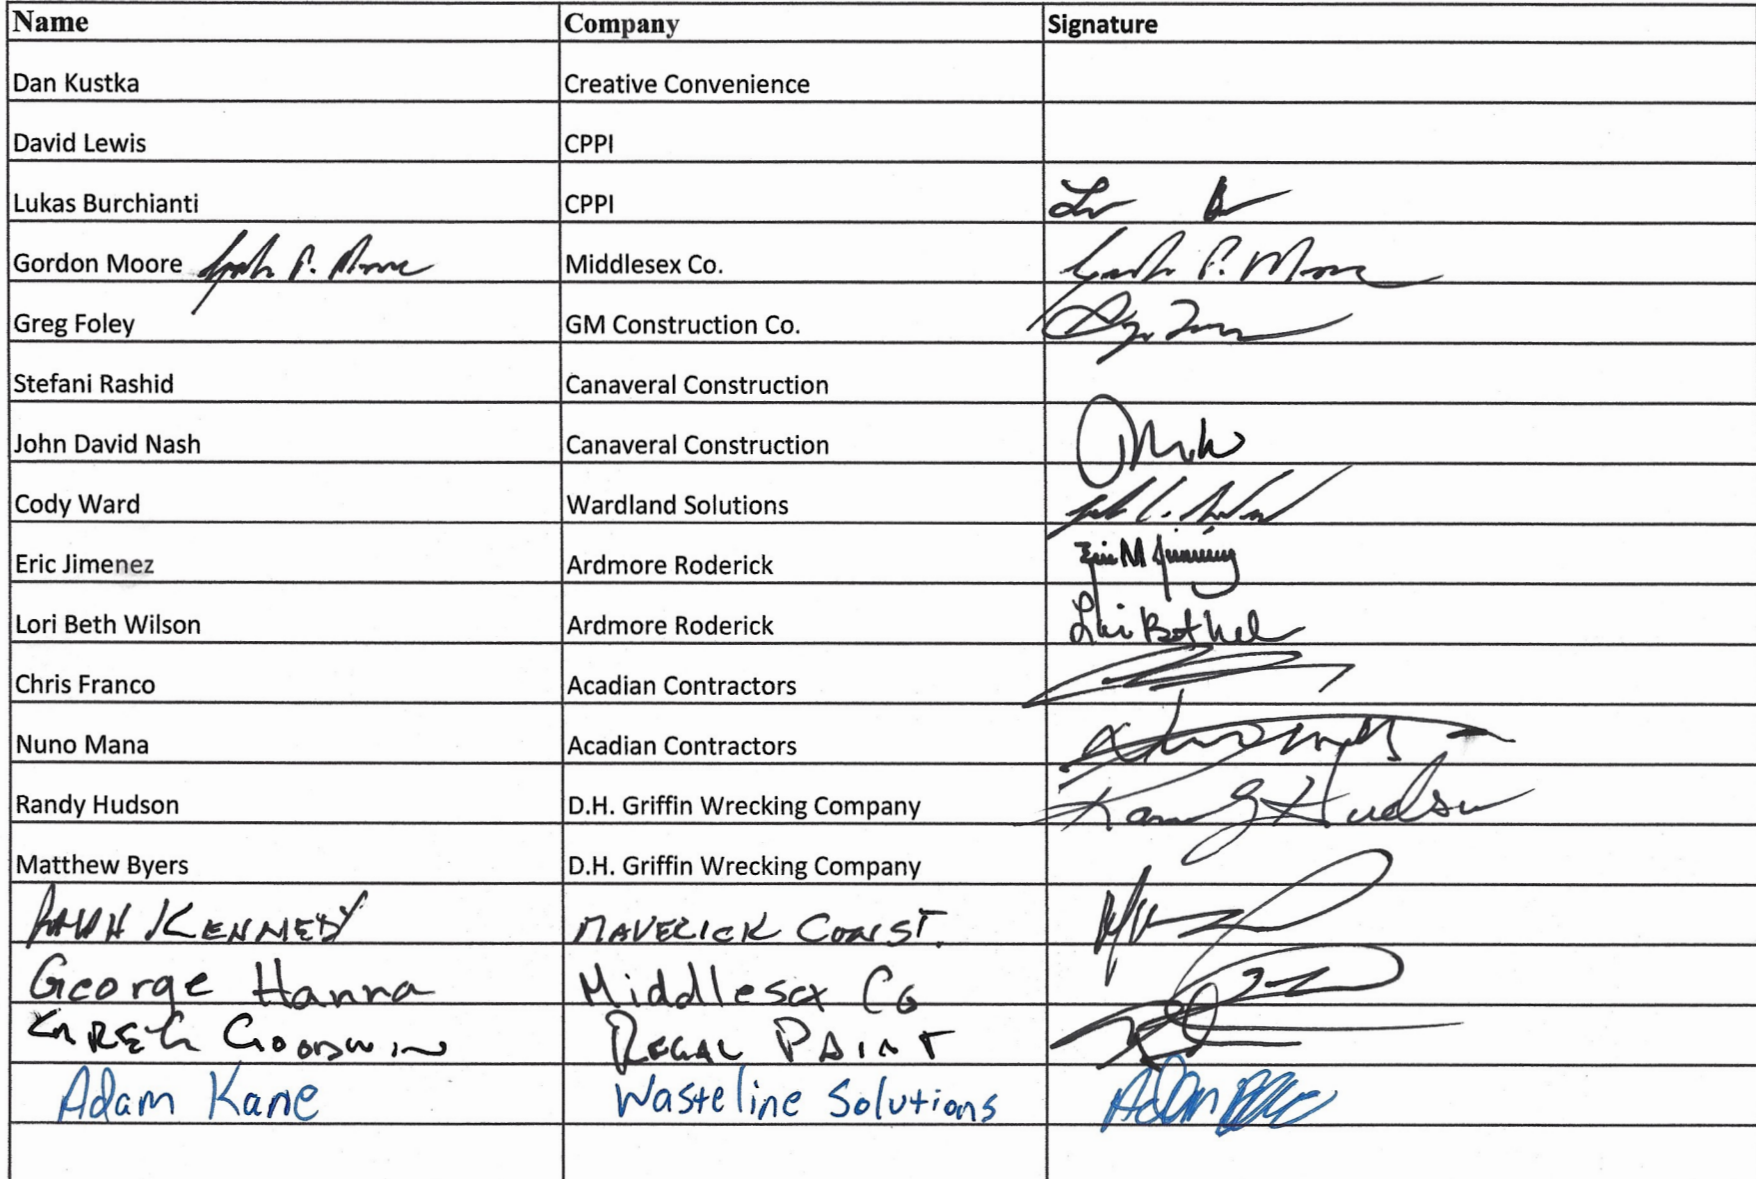 Name Company Signature
Dan Kustka Creative Convenience
David Lewis CPPI
Lukas Burchianti CPPI
Gordon Moore Middlesex Co. P. Moore
Greg Foley GM Construction Co.
Stefani Rashid Canaveral Construction
John David Nash Canaveral Construction
Cody Ward Wardland Solutions
Eric Jimenez Ardmore Roderick
Lori Beth Wilson Ardmore Roderick
Chris Franco Acadian Contractors
Nuno Mana Acadian Contractors
Randy Hudson D.H. Griffin Wrecking Company Randy Hudson
Matthew Byers D.H. Griffin Wrecking Company
KENNEDY MAVERICK CONST.
George Hanna Middlesex Co
GOODWIN REGAL PAINT
Adam Kane Wasteline Solutions Adam